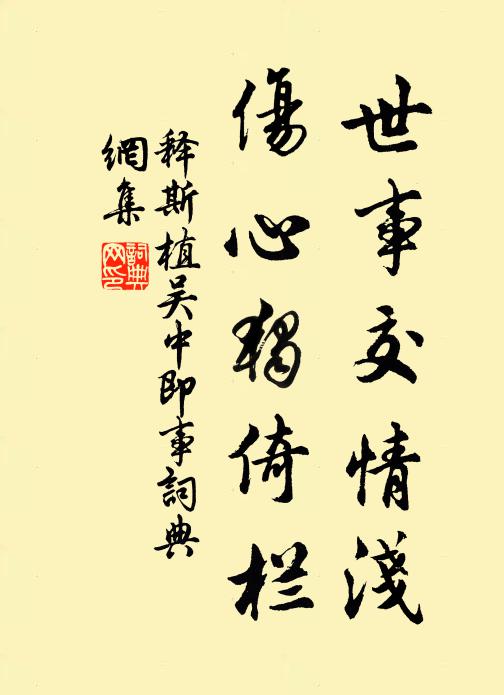 世事交情淺
傷心獨倚栏
释斯植吴中即事詞典
網集
詞典
网印